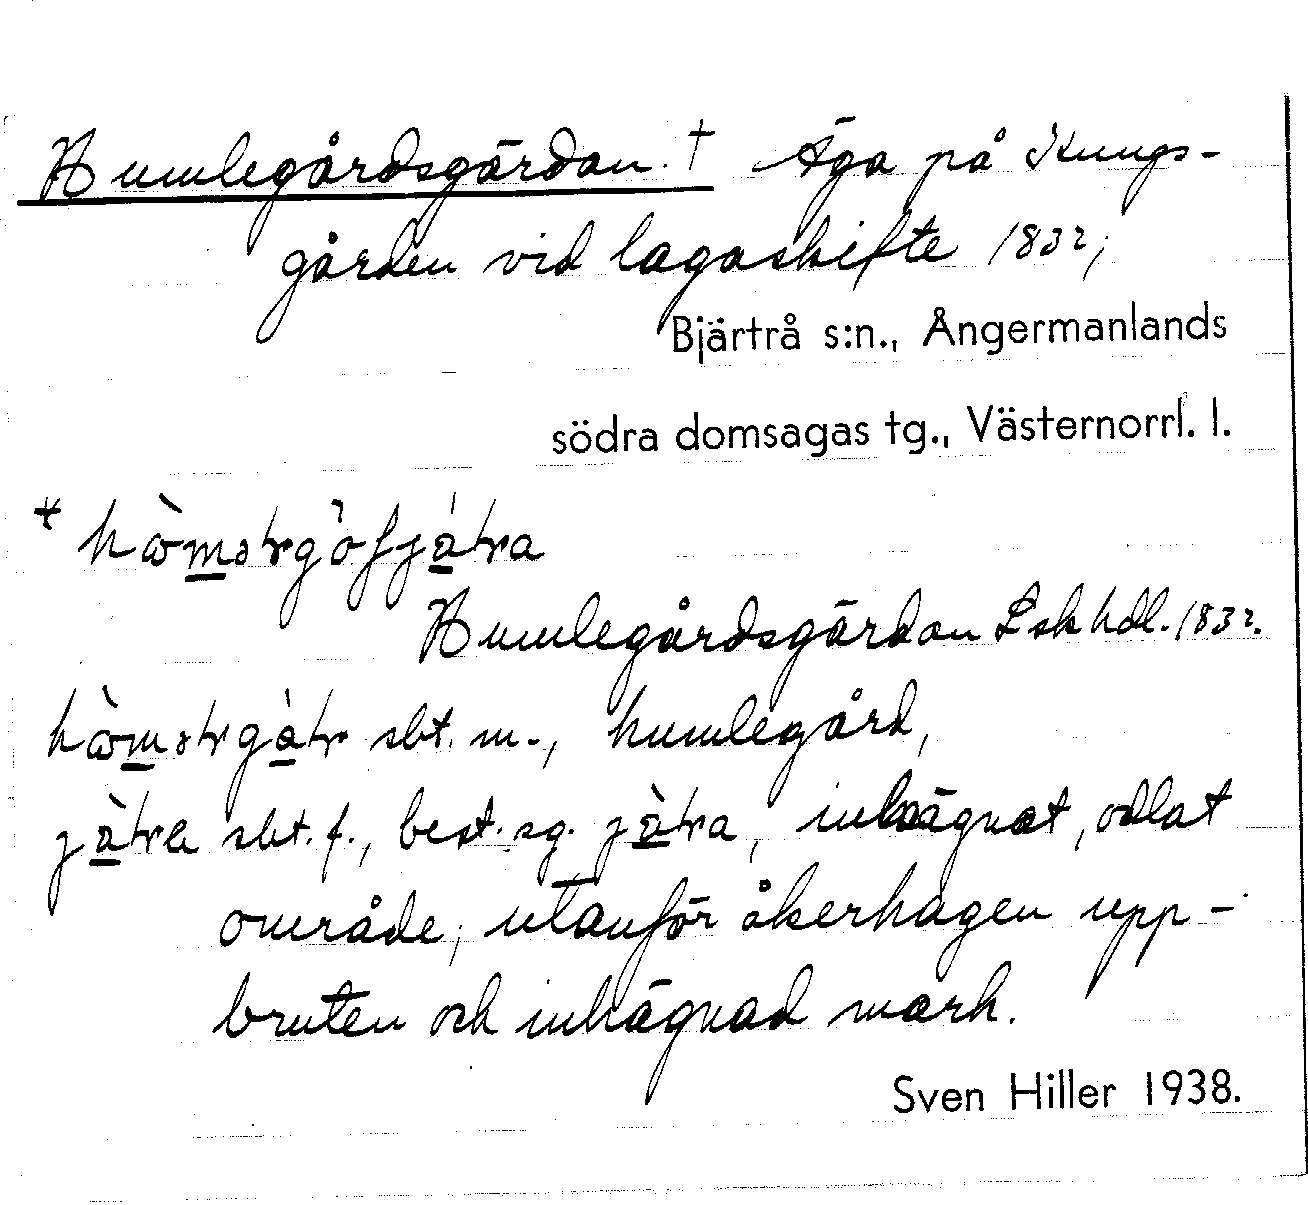 Humlegårdsgärdan. † Äga på Kungs-
gården vid lagaskifte 1832;
Bjärtrå s:n., Ångermanlands
södra domsagas tg., Västernorrl. l.
Humlegårdsgärdan Lskhdl. 1832.
sbt. m., humlegård,
sbt. f., best. sg. inhägnat, odlat
område, utanför åkerhagen upp-
bruten och inhägnad mark.
Sven Hiller 1938.